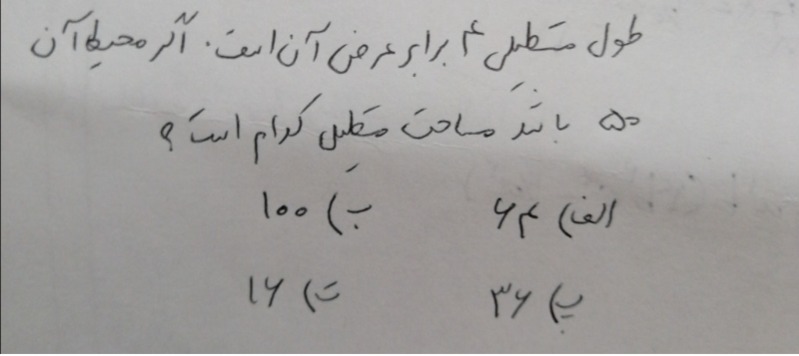 طول مستطیلی ۴ برابر عرض آن است. اگر محیط آن
۵۰ باشد مساحت مستطیل کدام است؟
الف) ۶۴ ب) ۱۰۰
پ) ۳۶ ت) ۱۶